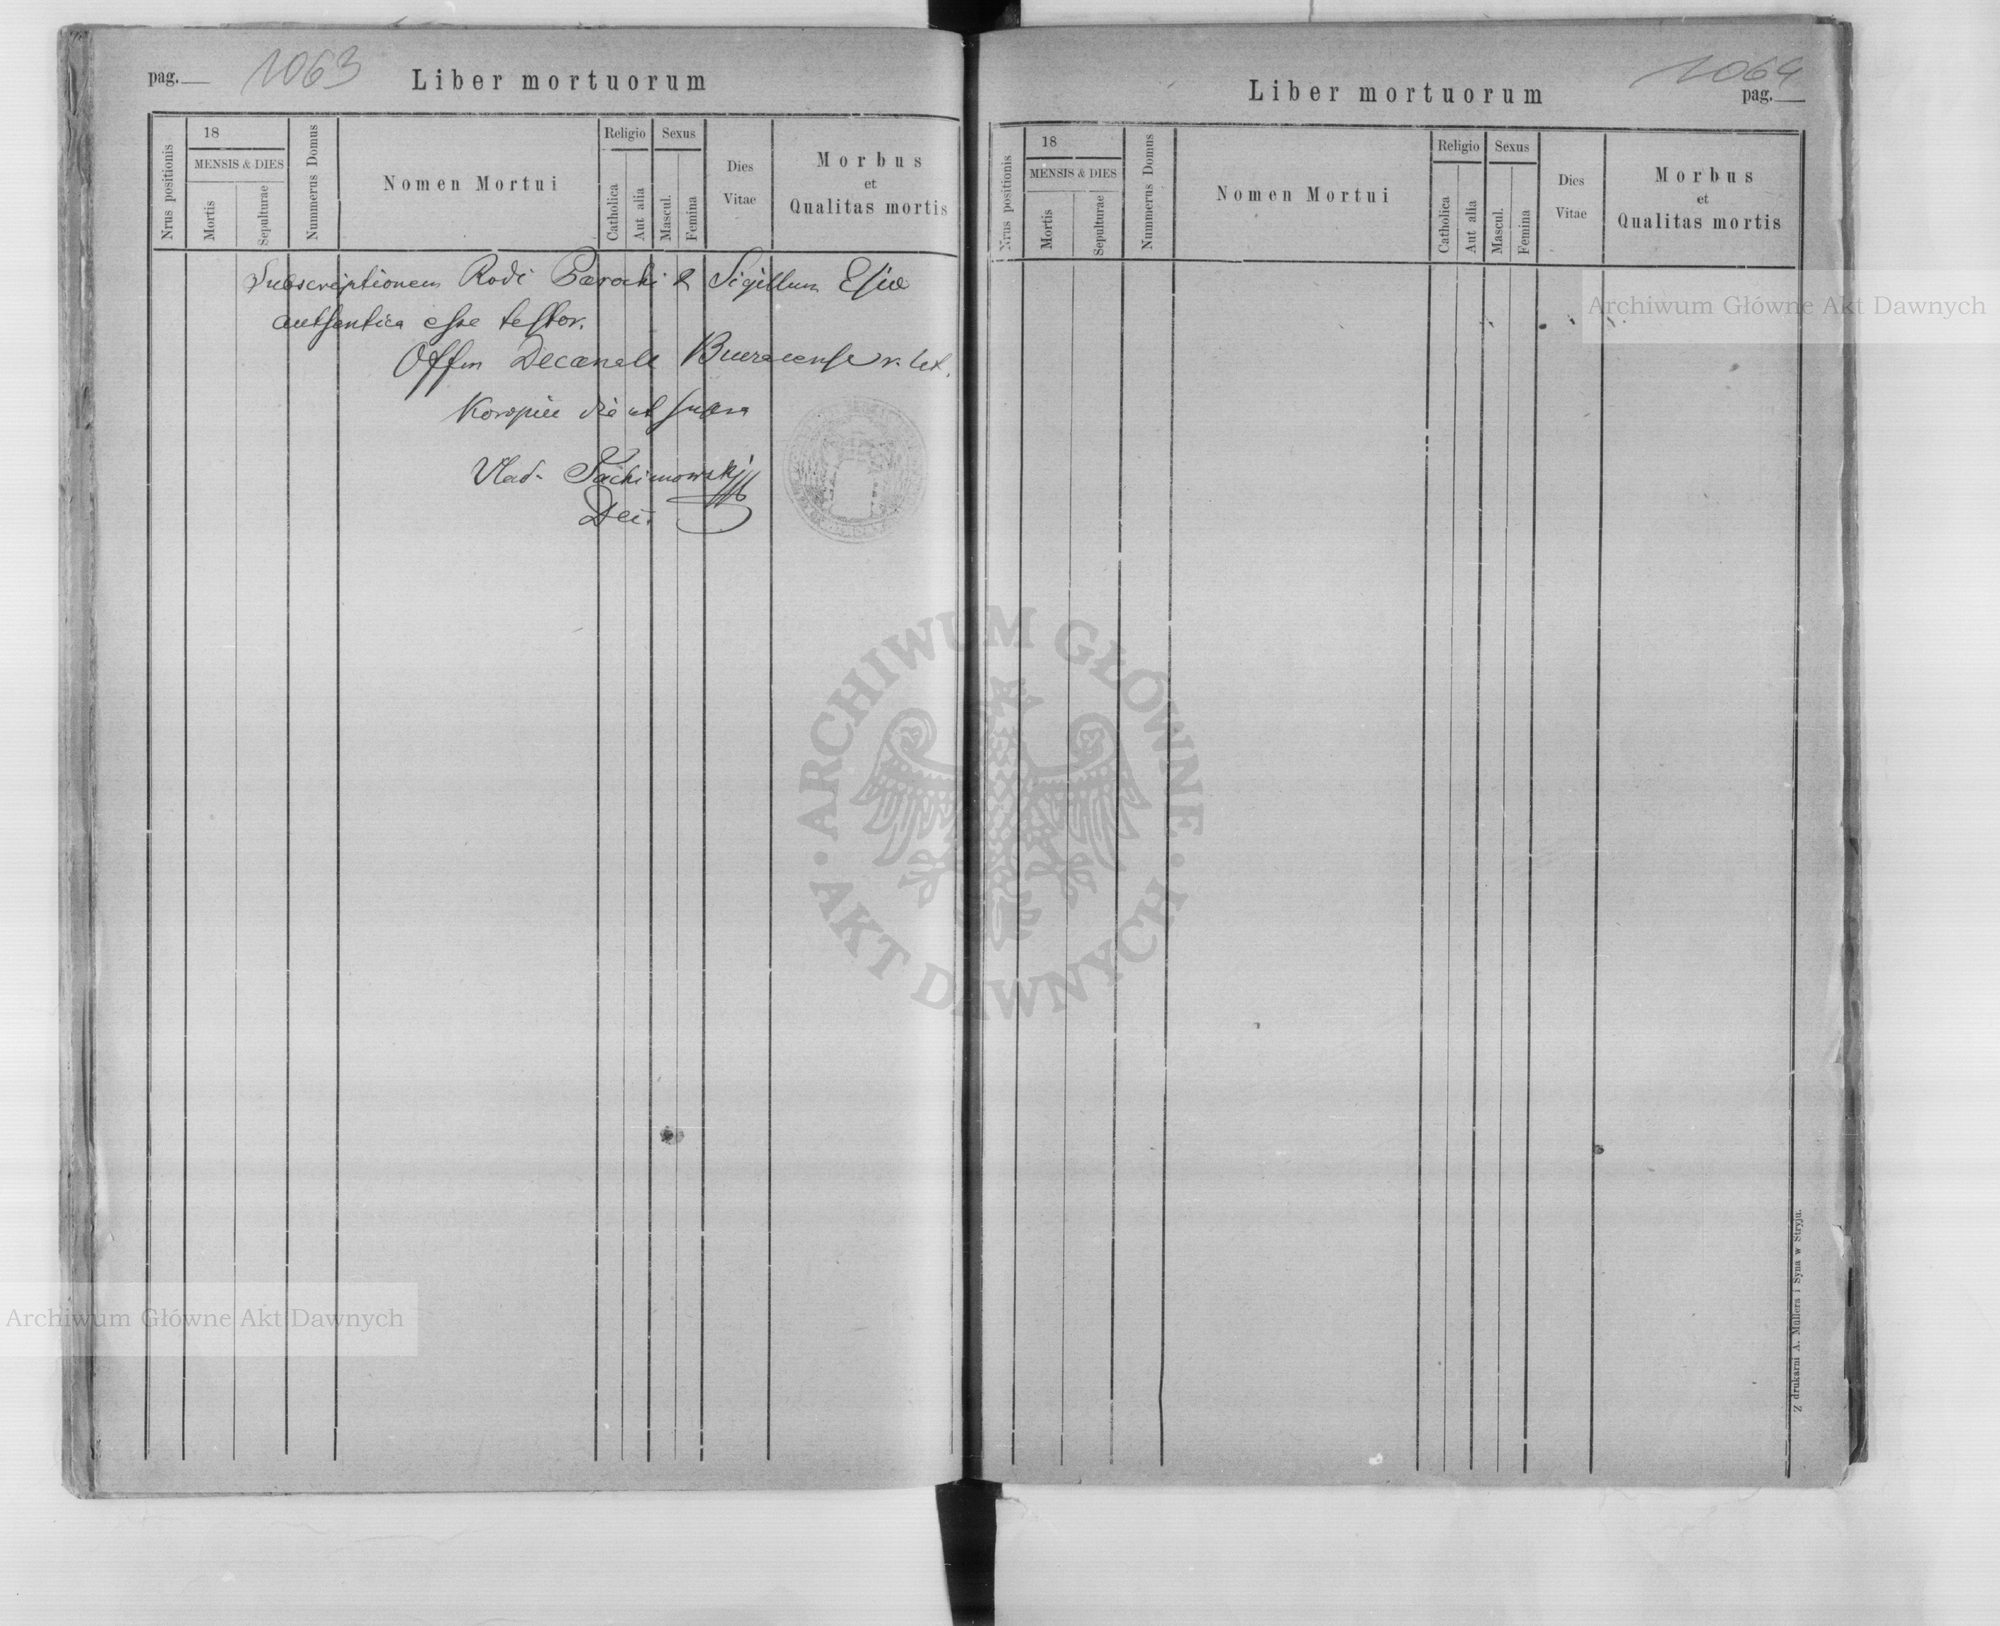 pag.
1063
Liber mortuorum
Nrus positionis
18
MENSIS & DIES
Mortis
Sepulturae
Nummerus Domus
Nomen Mortui
Religio
Catholica
Aut alia
Sexus
Mascul.
Femina
Dies
Vitae
Morbus
et
Qualitas mortis
Subscriptionem Rodi Parochi & Sigillum Esiæ
authentica esse testor.
Offm Decanale r. lat.
Koropiec die ut supra
Vlad.
Dec.
1064
pag.
Liber mortuorum
Nrus positionis
18
MENSIS & DIES
Mortis
Sepulturae
Nummerus Domus
Nomen Mortui
Religio
Catholica
Aut alia
Sexus
Mascul.
Femina
Dies
Vitae
Morbus
et
Qualitas mortis
Z drukarni A. Müllera i Syna w Stryju.
Archiwum Główne Akt Dawnych
ARCHIWUM GŁÓWNE
AKT DAWNYCH
Archiwum Główne Akt Dawnych